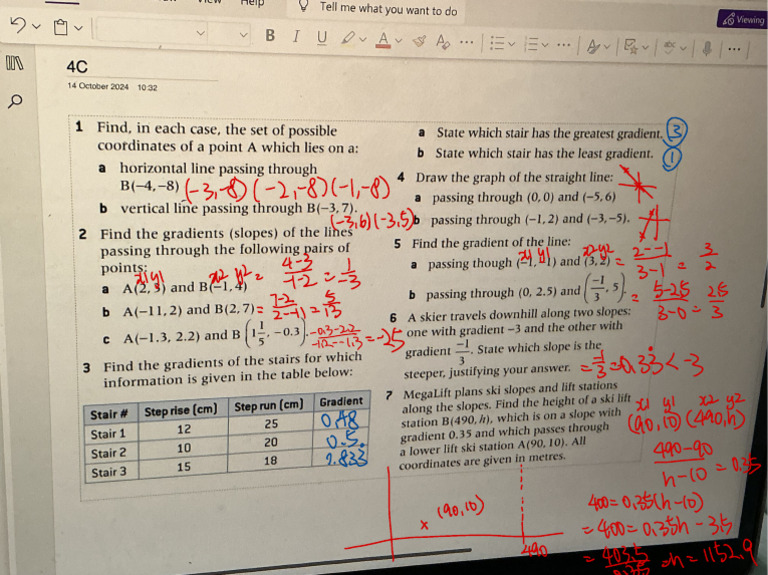 View Help
Tell me what you want to do
Viewing
B I U A
4C
14 October 2024 10:32
1 Find, in each case, the set of possible
coordinates of a point A which lies on a:
a horizontal line passing through
B(−4, −8) (-3,-8) (-2,-8) (-1,-8)
b vertical line passing through B(−3, 7).
(-3,6) (-3,5)
2 Find the gradients (slopes) of the lines
passing through the following pairs of
points:
x1 y1 x2 y2
a A(2, 3) and B(−1, 4) = 4-3/-1-2 = 1/-3
b A(−11, 2) and B(2, 7) = 7-2/2--11 = 5/13
c A(−1.3, 2.2) and B (1 1/5, −0.3).
= -25
3 Find the gradients of the stairs for which
information is given in the table below:
Stair # Step rise (cm) Step run (cm) Gradient
Stair 1 12 25 0.48
Stair 2 10 20 0.5.
Stair 3 15 18 .833
a State which stair has the greatest gradient. 3
b State which stair has the least gradient. 1
4 Draw the graph of the straight line:
a passing through (0, 0) and (−5, 6)
b passing through (−1, 2) and (−3, −5).
5 Find the gradient of the line:
x1 y1 x2 y2
a passing though (−1, −1) and (3, 2) = 2--1/3-1 = 3/2
b passing through (0, 2.5) and (−1/3, 5). = 5-25/3-0 = 25/3
6 A skier travels downhill along two slopes:
one with gradient −3 and the other with
gradient −1/3. State which slope is the
steeper, justifying your answer. = -1/3 = 0.33 < -3
7 MegaLift plans ski slopes and lift stations
along the slopes. Find the height of a ski lift
station B(490, h), which is on a slope with
gradient 0.35 and which passes through
a lower lift ski station A(90, 10). All
coordinates are given in metres.
x1 y1 x2 y2
(90,10) (490,h)
490-90/h-10 = 0.35
400 = 0.35(h-10)
= 400 = 0.35h - 3.5
= 403.5/0.35 = h = 1152.9
(90,10)
x
490